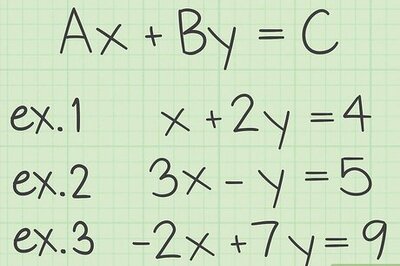 Ax + By = C
ex.1 x + 2y = 4
ex.2 3x - y = 5
ex.3 -2x + 7y = 9